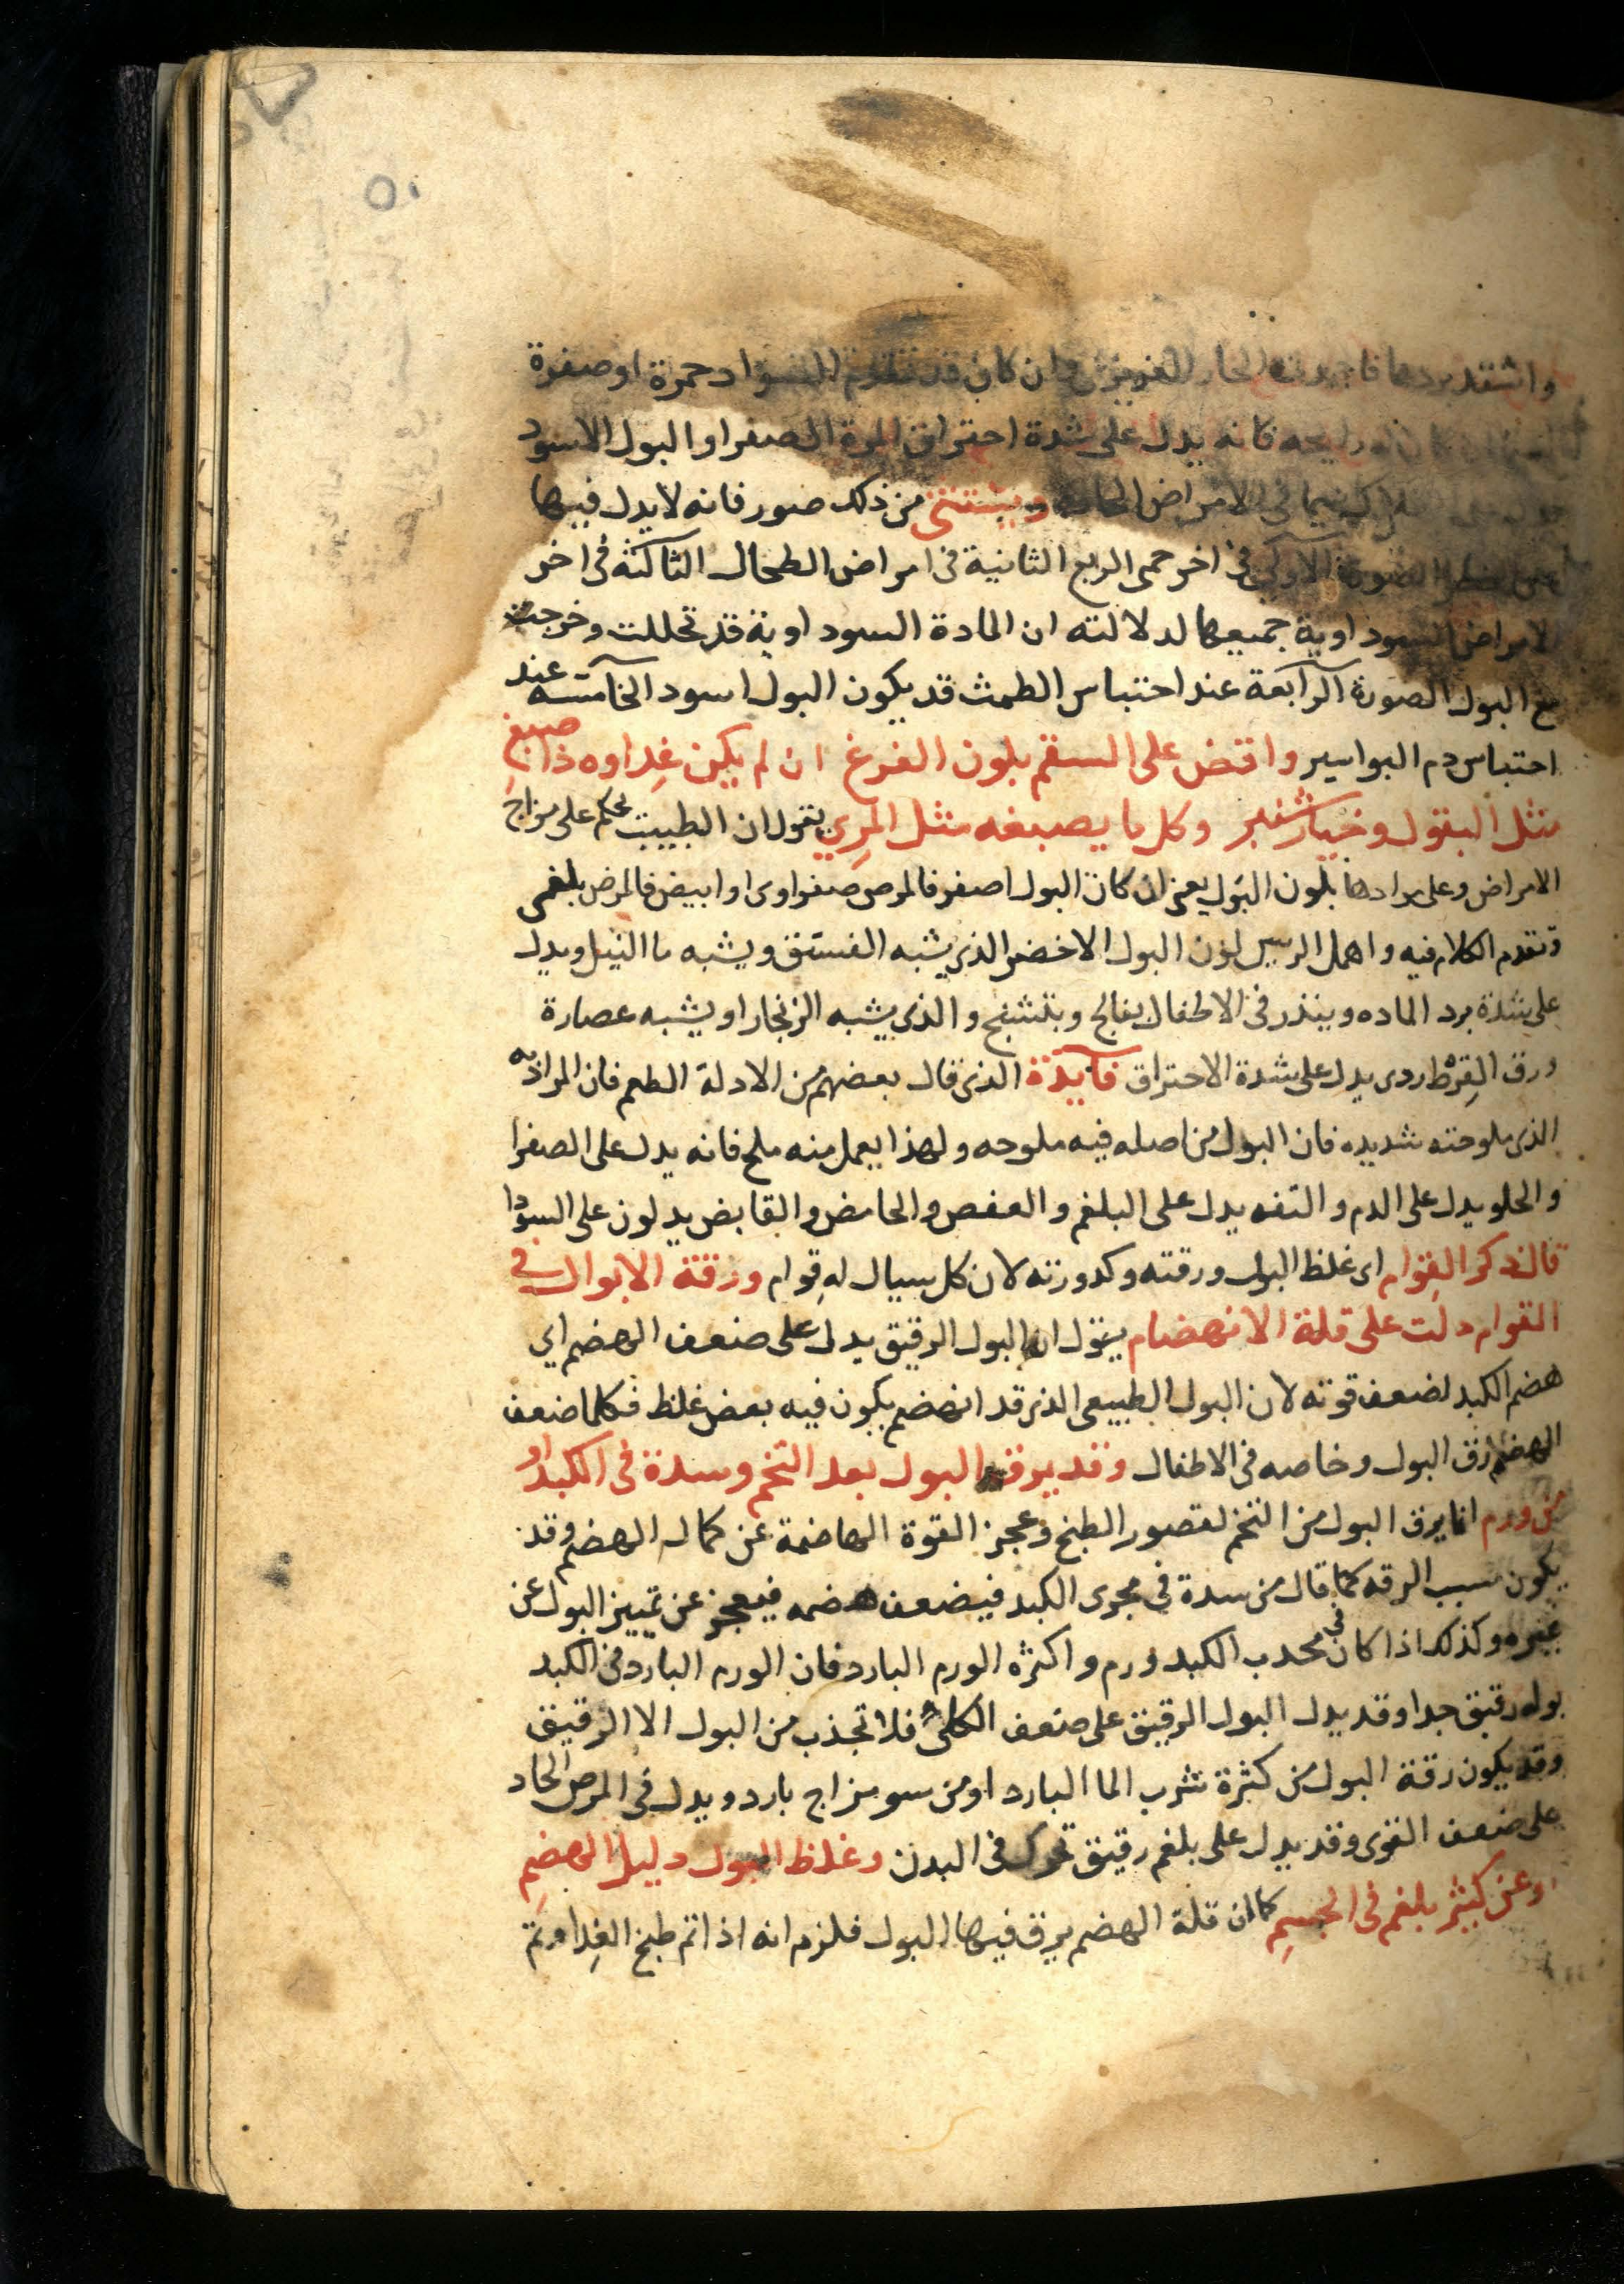 ٥٠
واشتد بردها الحار الغريزي وان كان قد تقدم السواد حمرة او صفرة
كان رايحه فانه يدل على شدة احتراق المرة الصفرا والبول الاسود
فى الامراض الحادة ويستثنى من ذلك صور فانه لا يدل فيها
الصورة الاولى فى اخر حمى الربع الثانية فى امراض الطحال الثالثة فى اخر
الامراض السوداوية جميعها لدلالته ان المادة السوداوية قد تحللت وخرجت
مع البول الصورة الرابعة عند احتباس الطمث قد يكون البول اسود الخامسه عند
احتباس دم البواسير واقض على السقم بلون الفرغ ان لم يكن غداوه ذا صبغ
مثل البقول وخيار شنبر وكل ما يصبغه مثل المري يقول ان الطبيب يحكم على مزاج
الامراض وعلى موادها بلون البول يعنى ان كان البول اصفر فالمرض صفراوى او ابيض فالمرض بلغمى
وتقدم الكلام فيه واهمل الريس لون البول الاخضر الذى يشبه الفستق ويشبه ما النيل ويدل
على شدة برد الماده وينذر فى الاطفال بفالج وبتشنج والذى يشبه الزنجار او يشبه عصارة
ورق القرط ردى يدل على شدة الاحتراق فآيدة الذى قال بعضهم من الادلة الطعم فان المراد به
الذى ملوحته شديده فان البول من اصله فيه ملوحه ولهذا يعمل منه ملح فانه يدل على الصفرا
والحلو يدل على الدم والتفه يدل على البلغم والعفص والحامض والقابض يدلون على السودا
قال ذكر القوام اى غلظ البول ورقته وكدورته لان كل سيال له قوام ورقة الابوال فى
القوام دلت على قلة الانهضام يقول ان البول الرقيق يدل على ضعف الهضم اي
هضم الكبد لضعف قوته لان البول الطبيعى الذى قد انهضم يكون فيه بعض غلظ فكلما ضعف
الهضم رق البول وخاصه فى الاطفال وقد يرق البول بعد التخم وسدة فى الكبد او
من ورم انما يرق البول من التخم لقصور الطبخ وعجز القوة الهاضمة عن كمال الهضم وقد
يكون سبب الرقه كما قال من سدة فى مجرى الكبد فيضعف هضمه فيعجز عن تمييز البول عن
غيره وكذلك اذا كان فى محدب الكبد ورم واكثره الورم البارد فان الورم البارد فى الكبد
بوله رقيق جدا وقد يدل البول الرقيق على ضعف الكلى فلا تجذب من البول الا الرقيق
وقد يكون رقة البول من كثرة شرب الما البارد او من سو مزاج بارد ويدل فى المرض الحاد
على ضعف القوى وقد يدل على بلغم رقيق تحرك فى البدن وغلظ البول دليل الهضم
وعن كثير بلغم فى الجسم كما ان قلة الهضم يرق فيها البول فلزم انه اذا تم طبخ الغدا وتم